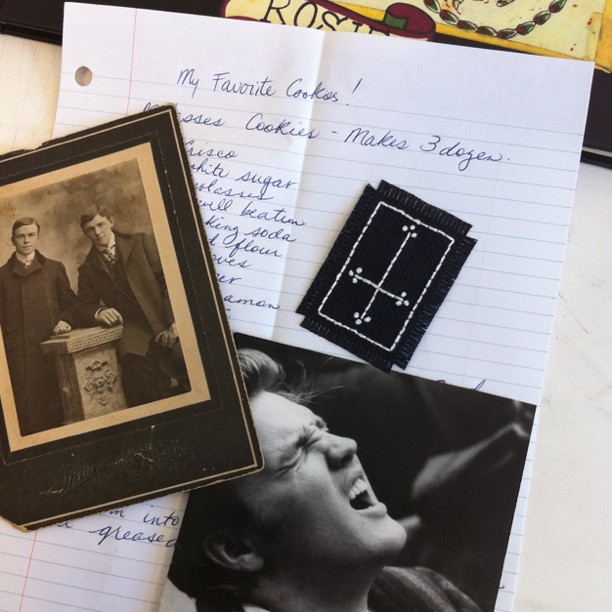 ROSIE
My Favorite Cookies!
asses Cookies - Makes 3 dozen.
risco
hite sugar
olasses
well beaten
king soda
d flour
oves
er
amon
m into
greased